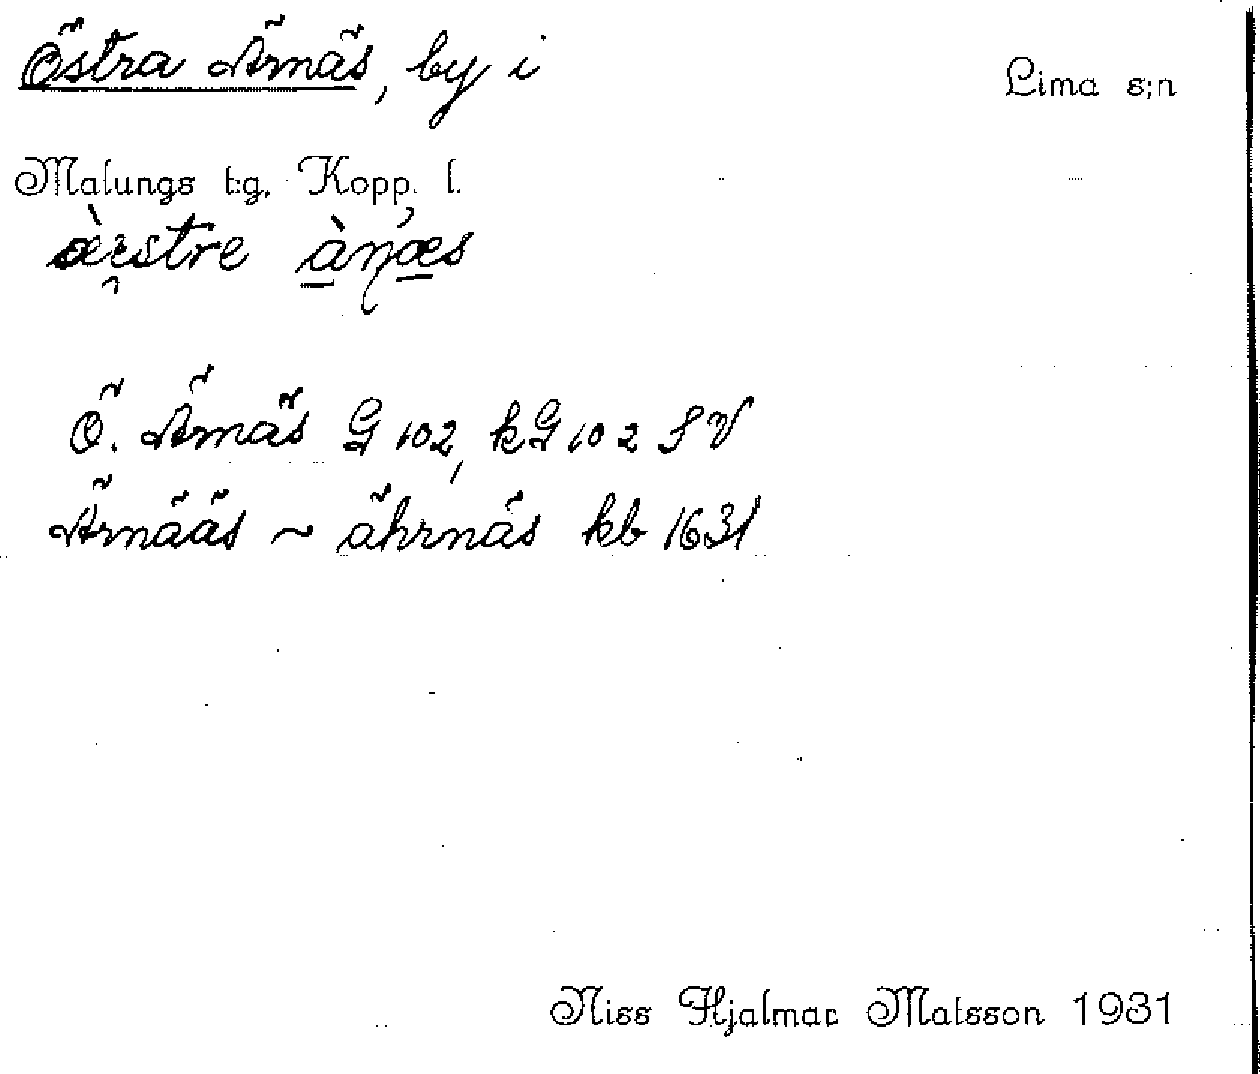 Östra Ärnäs, by i
Lima s:n
Malungs t:g. Kopp. l.
Ö. Ärnäs G 102, kG 102 SV
Ärnääs ~ ährnäs kb 1631
Niss Hjalmar Matsson 1931